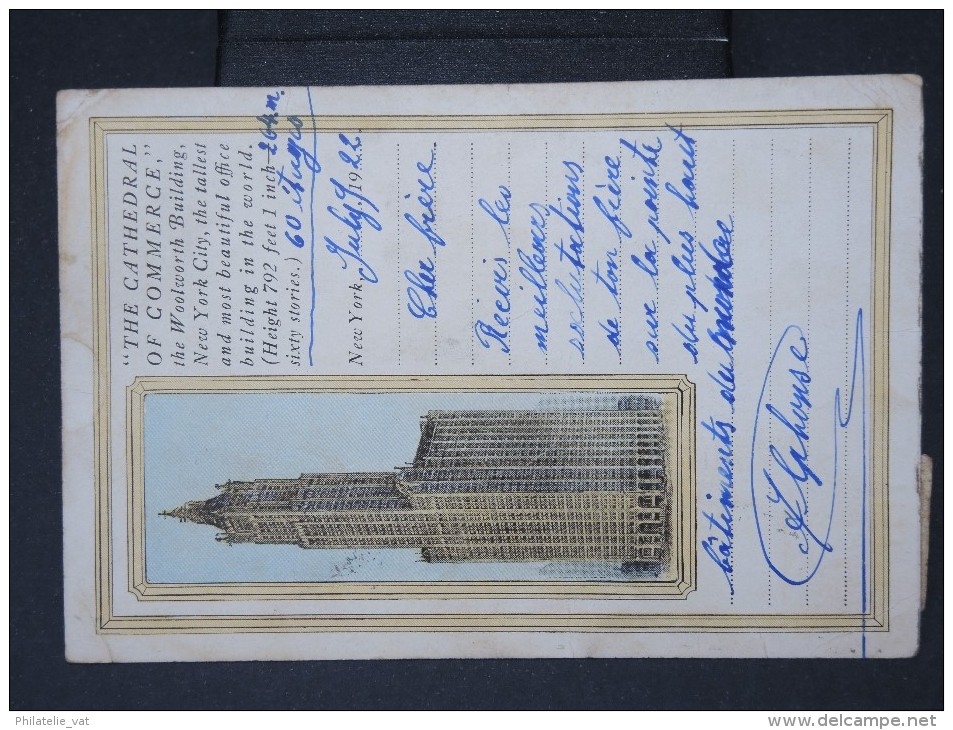 "THE CATHEDRAL
OF COMMERCE,"
the Woolworth Building,
New York City, the tallest
and most beautiful office
building in the world.
(Height 792 feet 1 inch 264 m.
sixty stories.) 60 étages
New York, July 9 1922.
Cher frère
Recois les
meilleurs
salutations
de ton frère
sur la pointe
du plus haut
bâtiments du monde
Alphonse
Philatelie_vat
http://www.delcampe.net